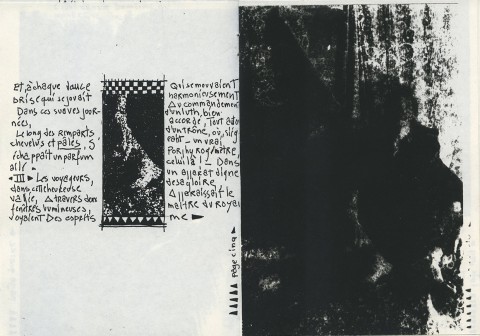 Et, à chaque douce
brise qui se jouait
Dans ces suaves jour-
nées,
Le long des remparts
chevelus et pâles, S'
échappait un parfum
ailé —
◄III► Les voyageurs,
dans cette heureuse
vallée, à travers deux
fenêtres lumineuses,
voyaient Des esprits
Qui se mouvaient
harmonieusement
Au commandement
d'un luth, bien
accordé, Tout autour
d'un trône, où, sié-
geant — un vrai
Porphyrogénète,
celui-là ! — Dans
un apparat digne
de sa gloire,
Apparaissait le
maître du Royau
me ►
page cinq